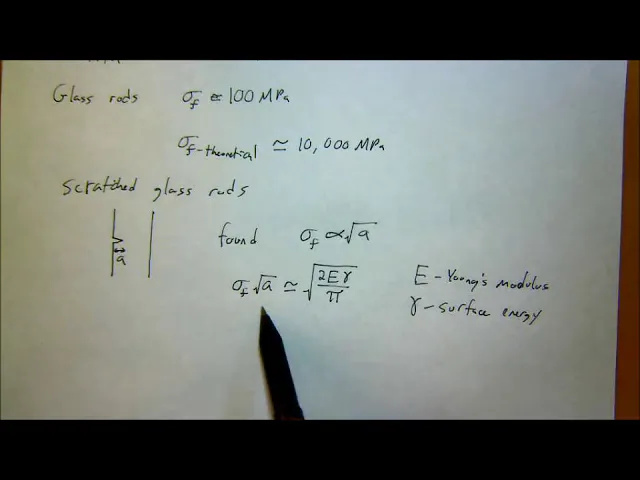 Glass rods σf ≃ 100 MPa
σf-theoretical ≃ 10,000 MPa
Scratched glass rods
found σf ∝ √a
a
σf √a ≃ √(2Eγ/π)
E - Young's modulus
γ - surface energy